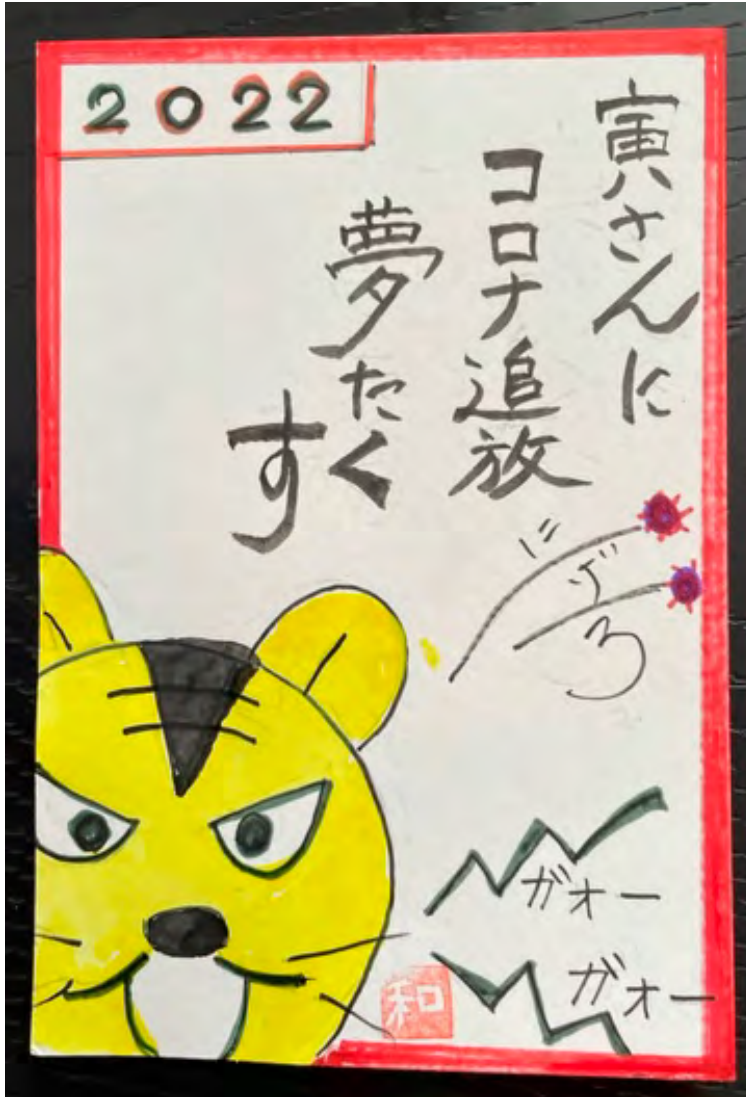 2022
寅さんに
コロナ追放
夢たく
す
にげろ
ガオー
ガオー
和